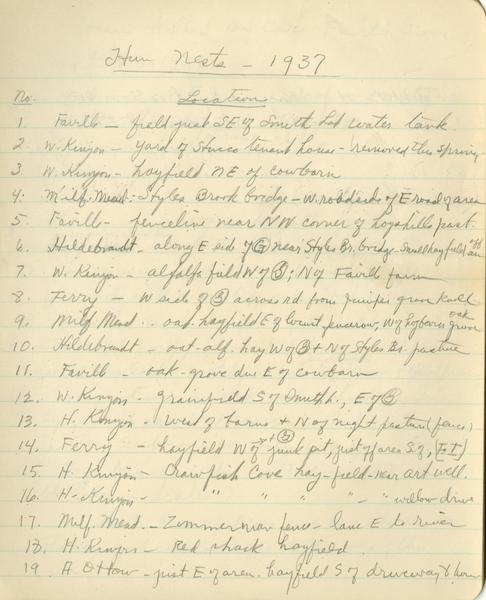 Hun Nests - 1937
No. Location
1. Faville - field just SE of Smith Lot water tank
2 W. Kinyon - yard of Stucco tenant house - removed this spring
3. W. Kinyon - hayfield NE of cowbarn
4. Milf. Mead. - Styles Brook bridge - W. roadside of E road of area
5. Faville - fenceline near NW corner of past.
6. Hildebrandt - along E side of G near Styles Br. bridge - small hayfield off area
7. W. Kinyon - alfalfa field W of 3; N of Faville farm
8. Ferry - W side of 3 across rd from juniper grown knoll
9. Milf. Mead. - oat hayfield E of locust fencerow, W of hogbarn oak grove
10. Hildebrandt - oat-alf. hay W of 3 + N of Styles Br. pasture
11. Faville - oak-grove due E of cowbarn
12. W. Kinyon - grainfield S of Smith L., E of 3
13. H. Kinyon - West of barns + N of night pasture (fence)
14. Ferry - hayfield W of junk pit, just of area S of,
15. H. Kinyon - Crawfish Cove hay-field near art well.
16. H. Kinyon - " " " " - " willow drive
17. Milf. Mead. - Zimmerman fence - lane E to river
18. H. Kinyon - Red shack hayfield.
19. A Ottow - just E of area. hayfield S of driveway & barn